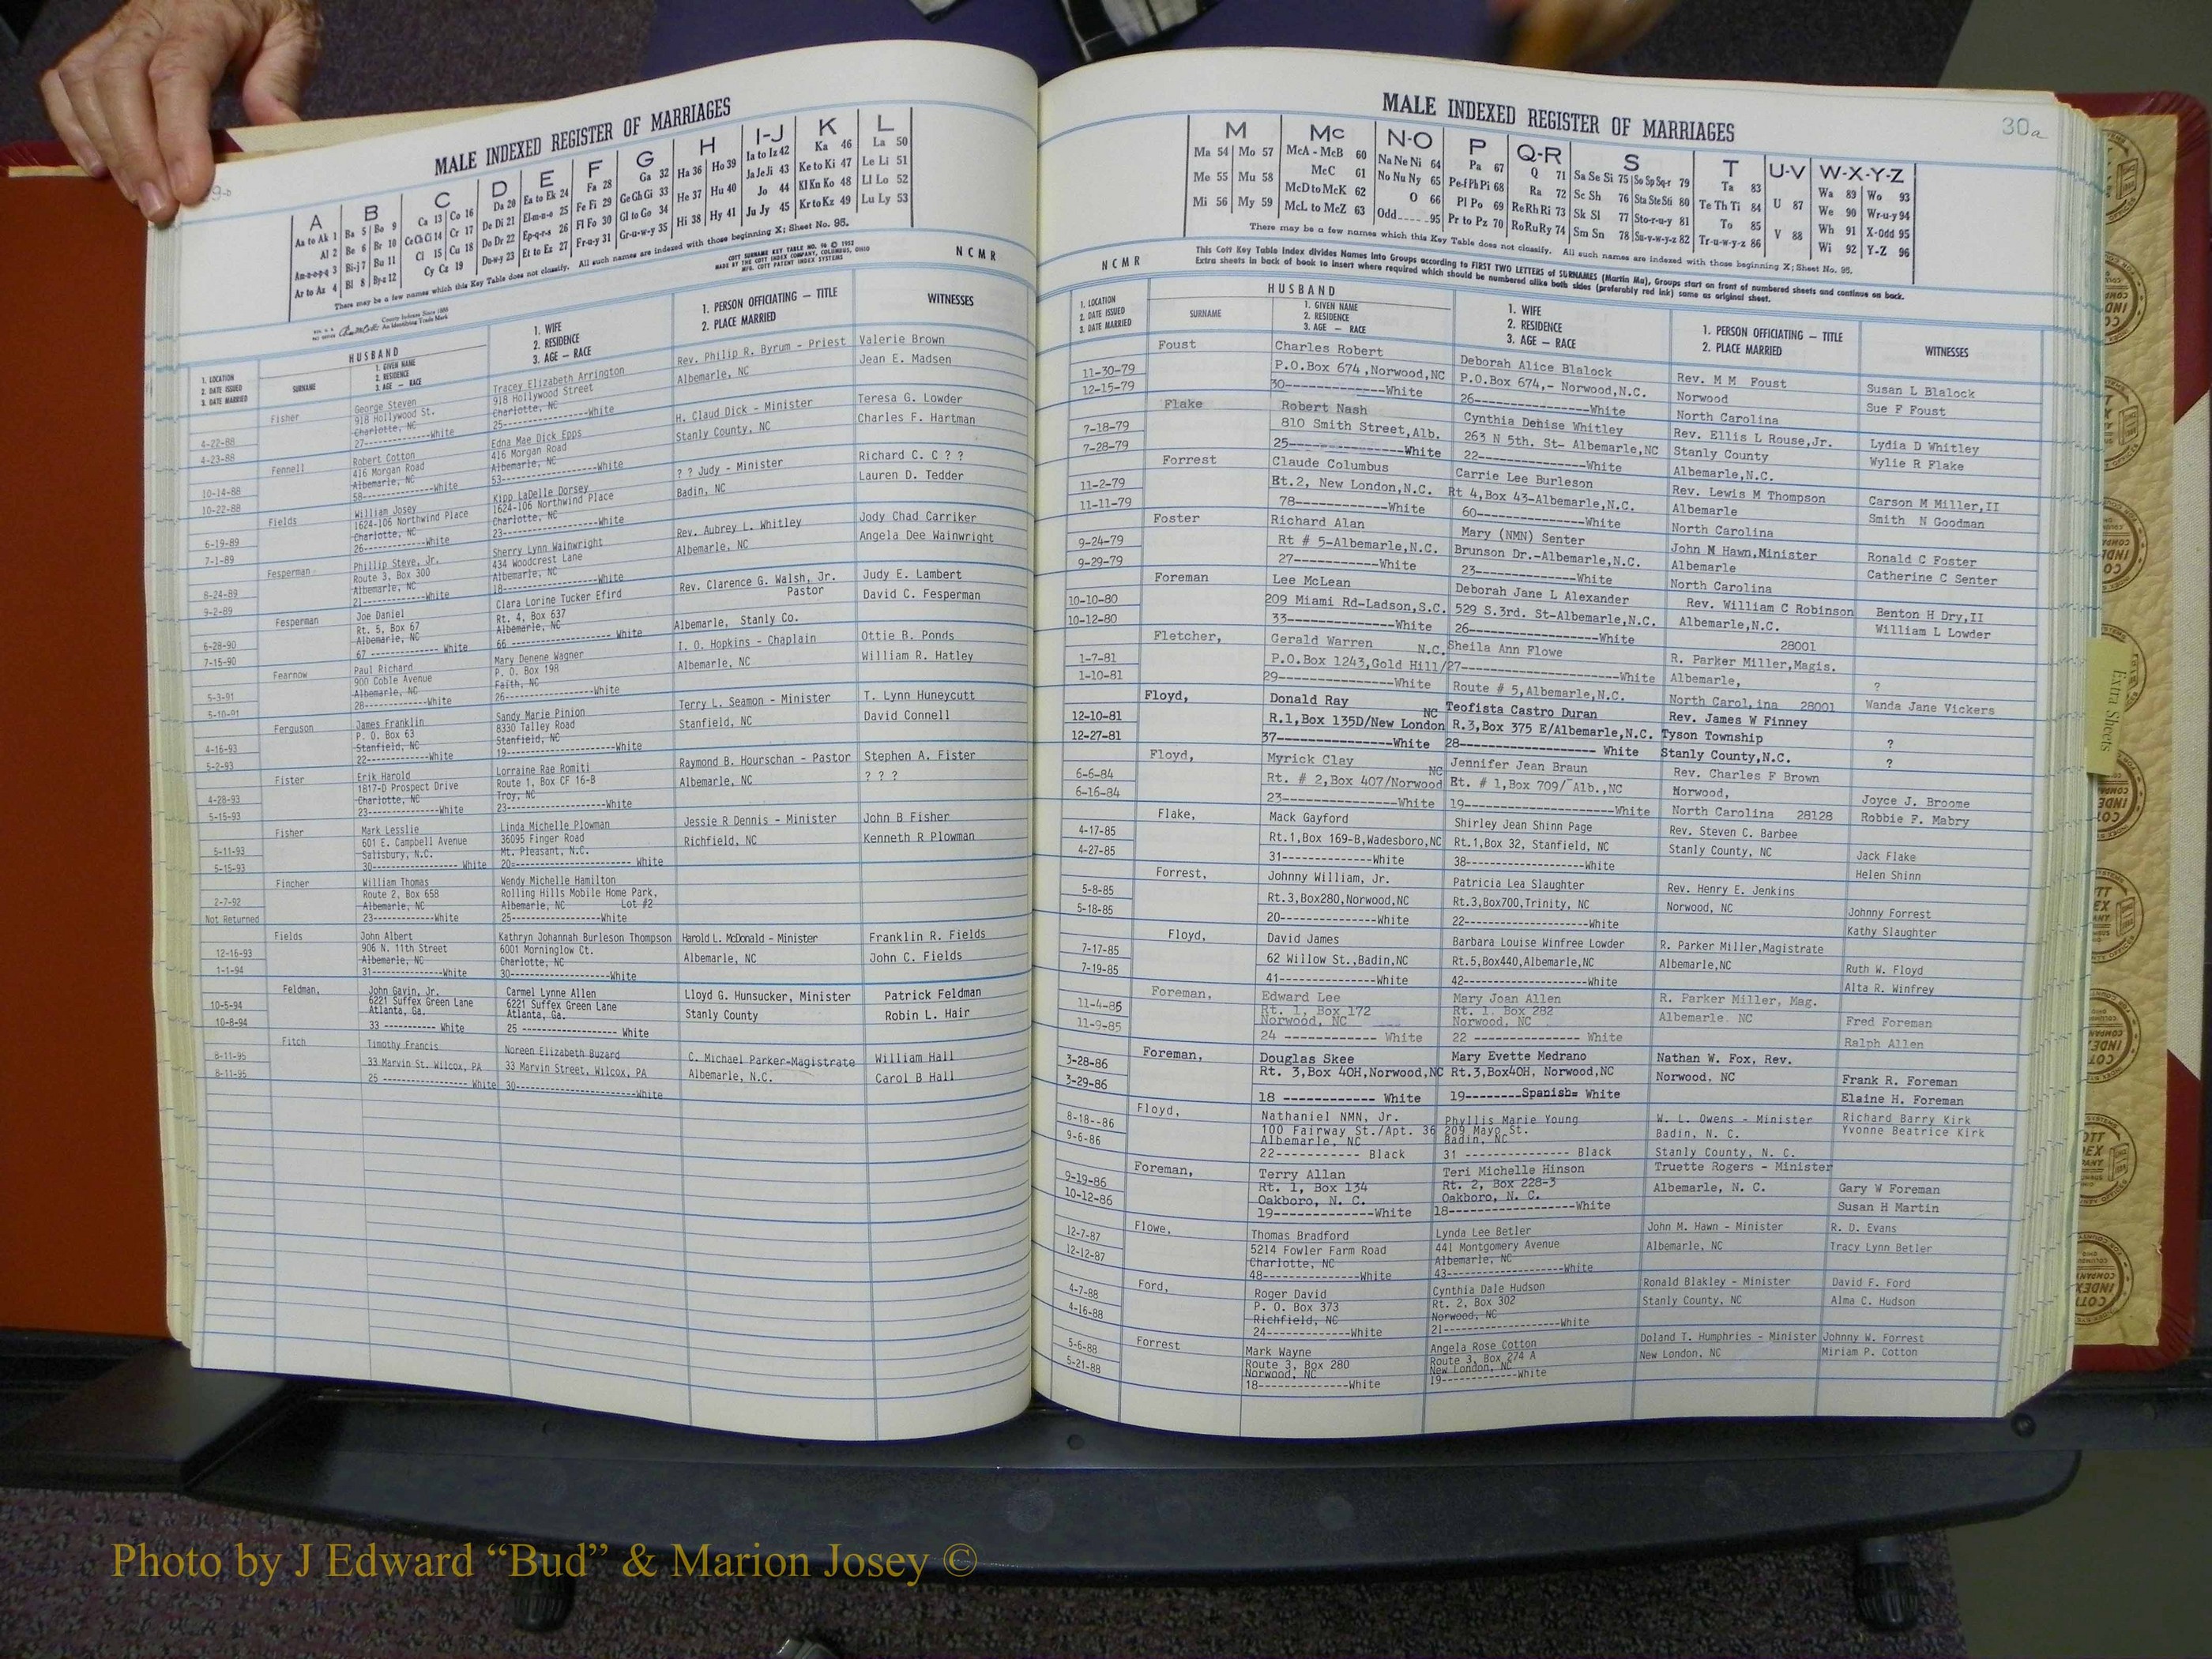 29-b
MALE INDEXED REGISTER OF MARRIAGES
A B C D E F G H I-J K L
Aa to Ak 1 Ba 5 Bo 9 Ca 13 Co 16 Da 20 Ea to Ek 24 Fa 28 Ga 32 Ha 36 Ho 39 Ia to Iz 42 Ka 46 La 50
Al 2 Be 6 Br 10 Ce Ch Ci 14 Cr 17 De Di 21 El-m-n-o 25 Fe Fi 29 Ge Gh Gi 33 He 37 Hu 40 Ja Je Ji 43 Ke to Ki 47 Le Li 51
Am-n-o-p-q 3 Bi-j 7 Bu 11 Cl 15 Cu 18 Do Dr 22 Ep-q-r-s 26 Fl Fo 30 Gl to Go 34 Hi 38 Hy 41 Jo 44 Kl Kn Ko 48 Ll Lo 52
Ar to Az 4 Bl 8 By-z 12 Cy Cz 19 Du-w-y 23 Et to Ez 27 Fr-u-y 31 Gr-u-w-y 35 Ju Jy 45 Kr to Kz 49 Lu Ly 53
There may be a few names which this Key Table does not classify. All such names are indexed with those beginning X; Sheet No. 95.
COTT SURNAME KEY TABLE NO. 96 © 1952
MADE BY THE COTT INDEX COMPANY, COLUMBUS, OHIO
MFG. COTT PATENT INDEX SYSTEMS
N C M R
County Indexes Since 1888
An Identifying Trade Mark
1. LOCATION
2. DATE ISSUED
3. DATE MARRIED
HUSBAND
SURNAME
1. GIVEN NAME
2. RESIDENCE
3. AGE — RACE
1. WIFE
2. RESIDENCE
3. AGE — RACE
1. PERSON OFFICIATING — TITLE
2. PLACE MARRIED
WITNESSES
Fisher George Steven Tracey Elizabeth Arrington Rev. Philip R. Byrum - Priest Valerie Brown
4-22-88 918 Hollywood St. 918 Hollywood Street Albemarle, NC Jean E. Madsen
4-23-88 Charlotte, NC Charlotte, NC
27-------------White 25-------------White
Fennell Robert Cotton Edna Mae Dick Epps H. Claud Dick - Minister Teresa G. Lowder
10-14-88 416 Morgan Road 416 Morgan Road Stanly County, NC Charles F. Hartman
10-22-88 Albemarle, NC Albemarle, NC
58-------------White 53-------------White
Fields William Josey Kipp LaDelle Dorsey ? ? Judy - Minister Richard C. C ? ?
6-19-89 1624-106 Northwind Place 1624-106 Northwind Place Badin, NC Lauren D. Tedder
7-1-89 Charlotte, NC Charlotte, NC
26-------------White 23-------------White
Fesperman Phillip Steve, Jr. Sherry Lynn Wainwright Rev. Aubrey L. Whitley Jody Chad Carriker
8-24-89 Route 3, Box 300 434 Woodcrest Lane Albemarle, NC Angela Dee Wainwright
9-2-89 Albemarle, NC Albemarle, NC
21-------------White 18-------------White
Fesperman Joe Daniel Clara Lorine Tucker Efird Rev. Clarence G. Walsh, Jr. Judy E. Lambert
6-28-90 Rt. 5, Box 67 Rt. 4, Box 637 Pastor David C. Fesperman
7-15-90 Albemarle, NC Albemarle, NC Albemarle, Stanly Co.
67 ------------- White 66 ------------- White
Fearnow Paul Richard Mary Denene Wagner I. O. Hopkins - Chaplain Ottie B. Ponds
5-3-91 900 Coble Avenue P. O. Box 198 Albemarle, NC William R. Hatley
5-10-91 Albemarle, NC Faith, NC
28-------------White 26-------------White
Ferguson James Franklin Sandy Marie Pinion Terry L. Seamon - Minister T. Lynn Huneycutt
4-16-93 P. O. Box 63 8330 Talley Road Stanfield, NC David Connell
5-2-93 Stanfield, NC Stanfield, NC
22-------------White 19-------------White
Fister Erik Harold Lorraine Rae Romiti Raymond B. Hourschan - Pastor Stephen A. Fister
4-28-93 1817-D Prospect Drive Route 1, Box CF 16-B Albemarle, NC ? ? ?
5-15-93 Charlotte, NC Troy, NC
23-------------White 23-------------White
Fisher Mark Lesslie Linda Michelle Plowman Jessie R Dennis - Minister John B Fisher
5-11-93 601 E. Campbell Avenue 36095 Finger Road Richfield, NC Kenneth R Plowman
5-15-93 Salisbury, N.C. Mt. Pleasant, N.C.
30------------- White 20------------- White
Fincher William Thomas Wendy Michelle Hamilton
2-7-92 Route 2, Box 658 Rolling Hills Mobile Home Park,
Not Returned Albemarle, NC Albemarle, NC Lot #2
23-------------White 25-------------White
Fields John Albert Kathryn Johannah Burleson Thompson Harold L. McDonald - Minister Franklin R. Fields
12-16-93 906 N. 11th Street 6001 Morninglow Ct. Albemarle, NC John C. Fields
1-1-94 Albemarle, NC Charlotte, NC
31-------------White 30-------------White
Feldman, John Gavin, Jr. Carmel Lynne Allen Lloyd G. Hunsucker, Minister Patrick Feldman
10-5-94 6221 Suffex Green Lane 6221 Suffex Green Lane Stanly County Robin L. Hair
10-8-94 Atlanta, Ga. Atlanta, Ga.
33 ----------- White 25 ------------- White
Fitch Timothy Francis Noreen Elizabeth Buzard C. Michael Parker-Magistrate William Hall
8-11-95 33 Marvin St. Wilcox, PA 33 Marvin Street, Wilcox, PA Albemarle, N.C. Carol B Hall
8-11-95 25 ------------- White 30-------------White
30a
MALE INDEXED REGISTER OF MARRIAGES
M Mc N-O P Q-R S T U-V W-X-Y-Z
Ma 54 Mo 57 McA - McB 60 Na Ne Ni 64 Pa 67 Q 71 Sa Se Si 75 So Sp Sq-r 79 Ta 83 U 87 Wa 89 Wo 93
Me 55 Mu 58 McC 61 No Nu Ny 65 Pe-f Ph Pi 68 Ra 72 Sc Sh 76 Sta Ste Sti 80 Te Th Ti 84 V 88 We 90 Wr-u-y 94
Mi 56 My 59 McD to McK 62 O 66 Pl Po 69 Re Rh Ri 73 Sk Sl 77 Sto-r-u-y 81 To 85 Wh 91 X-Odd 95
McL to McZ 63 Odd 95 Pr to Pz 70 Ro Ru Ry 74 Sm Sn 78 Su-v-w-y-z 82 Tr-u-w-y-z 86 Wi 92 Y-Z 96
There may be a few names which this Key Table does not classify. All such names are indexed with those beginning X; Sheet No. 95.
This Cott Key Table Index divides Names into Groups according to FIRST TWO LETTERS of SURNAMES (Martin Ma), Groups start on front of numbered sheets and continue on back.
Extra sheets in back of book to insert where required which should be numbered alike both sides (preferably red ink) same as original sheet.
N C M R
1. LOCATION
2. DATE ISSUED
3. DATE MARRIED
HUSBAND
SURNAME
1. GIVEN NAME
2. RESIDENCE
3. AGE — RACE
1. WIFE
2. RESIDENCE
3. AGE — RACE
1. PERSON OFFICIATING — TITLE
2. PLACE MARRIED
WITNESSES
Foust Charles Robert Deborah Alice Blalock Rev. M M Foust Susan L Blalock
11-30-79 P.O.Box 674,Norwood,NC P.O.Box 674,- Norwood,N.C. Norwood Sue F Foust
12-15-79 30-------------White 26-------------White North Carolina
Flake Robert Nash Cynthia Denise Whitley Rev. Ellis L Rouse,Jr. Lydia D Whitley
7-18-79 810 Smith Street,Alb. 263 N 5th. St- Albemarle,NC Stanly County Wylie R Flake
7-28-79 25-------------White 22-------------White Albemarle,N.C.
Forrest Claude Columbus Carrie Lee Burleson Rev. Lewis M Thompson Carson M Miller,II
11-2-79 Rt.2, New London,N.C. Rt 4,Box 43-Albemarle,N.C. Albemarle Smith N Goodman
11-11-79 78-------------White 60-------------White North Carolina
Foster Richard Alan Mary (NMN) Senter John M Hawn,Minister Ronald C Foster
9-24-79 Rt # 5-Albemarle,N.C. Brunson Dr.-Albemarle,N.C. Albemarle Catherine C Senter
9-29-79 27-------------White 23-------------White North Carolina
Foreman Lee McLean Deborah Jane L Alexander Rev. William C Robinson Benton H Dry,II
10-10-80 209 Miami Rd-Ladson,S.C. 529 S.3rd. St-Albemarle,N.C. Albemarle,N.C. William L Lowder
10-12-80 33-------------White 26-------------White 28001
Fletcher, Gerald Warren N.C. Sheila Ann Flowe R. Parker Miller,Magis. ?
1-7-81 P.O.Box 1243,Gold Hill/ 27-------------White Albemarle, Wanda Jane Vickers
1-10-81 29-------------White Route # 5,Albemarle,N.C. North Carol,ina 28001
Floyd, Donald Ray NC Teofista Castro Duran Rev. James W Finney ?
12-10-81 R.1,Box 135D/New London R.3,Box 375 E/Albemarle,N.C. Tyson Township ?
12-27-81 37-------------White 28------------- White Stanly County,N.C.
Floyd, Myrick Clay NC Jennifer Jean Braun Rev. Charles F Brown Joyce J. Broome
6-6-84 Rt. # 2,Box 407/Norwood Rt. # 1,Box 709/ Alb.,NC Norwood, Robbie F. Mabry
6-16-84 23-------------White 19-------------White North Carolina 28128
Flake, Mack Gayford Shirley Jean Shinn Page Rev. Steven C. Barbee Jack Flake
4-17-85 Rt.1,Box 169-B,Wadesboro,NC Rt.1,Box 32, Stanfield, NC Stanly County, NC Helen Shinn
4-27-85 31-------------White 38-------------White
Forrest, Johnny William, Jr. Patricia Lea Slaughter Rev. Henry E. Jenkins Johnny Forrest
5-8-85 Rt.3,Box280,Norwood,NC Rt.3,Box700,Trinity, NC Norwood, NC Kathy Slaughter
5-18-85 20-------------White 22-------------White
Floyd, David James Barbara Louise Winfree Lowder R. Parker Miller,Magistrate Ruth W. Floyd
7-17-85 62 Willow St.,Badin,NC Rt.5,Box440,Albemarle,NC Albemarle,NC Alta R. Winfrey
7-19-85 41-------------White 42-------------White
Foreman, Edward Lee Mary Joan Allen R. Parker Miller, Mag. Fred Foreman
11-4-85 Rt. 1, Box 172 Rt. 1. Box 282 Albemarle. NC Ralph Allen
11-9-85 Norwood, NC Norwood, NC
24 ------------- White 22 ------------- White
Foreman, Douglas Skee Mary Evette Medrano Nathan W. Fox, Rev. Frank R. Foreman
3-28-86 Rt. 3,Box 40H,Norwood,NC Rt.3,Box40H, Norwood,NC Norwood, NC Elaine H. Foreman
3-29-86 18 ------------ White 19--------Spanish= White
Floyd, Nathaniel NMN, Jr. Phyllis Marie Young W. L. Owens - Minister Richard Barry Kirk
8-18--86 100 Fairway St./Apt. 36 209 Mayo St. Badin, N. C. Yvonne Beatrice Kirk
9-6-86 Albemarle, NC Badin, NC Stanly County, N. C.
22----------- Black 31 -------------- Black
Foreman, Terry Allan Teri Michelle Hinson Truette Rogers - Minister Gary W Foreman
9-19-86 Rt. 1, Box 134 Rt. 2, Box 228-3 Albemarle, N. C. Susan H Martin
10-12-86 Oakboro, N. C. Oakboro, N. C.
19-------------White 18-------------White
Flowe, Thomas Bradford Lynda Lee Betler John M. Hawn - Minister R. D. Evans
12-7-87 5214 Fowler Farm Road 441 Montgomery Avenue Albemarle, NC Tracy Lynn Betler
12-12-87 Charlotte, NC Albemarle, NC
48-------------White 43-------------White
Ford, Roger David Cynthia Dale Hudson Ronald Blakley - Minister David F. Ford
4-7-88 P. O. Box 373 Rt. 2, Box 302 Stanly County, NC Alma C. Hudson
4-16-88 Richfield, NC Norwood, NC
24-------------White 21-------------White
Forrest Mark Wayne Angela Rose Cotton Doland T. Humphries - Minister Johnny W. Forrest
5-6-88 Route 3, Box 280 Route 3, Box 274 A New London, NC Miriam P. Cotton
5-21-88 Norwood, NC New London, NC
18-------------White 19-------------White
Extra Sheets
Photo by J Edward “Bud” & Marion Josey ©